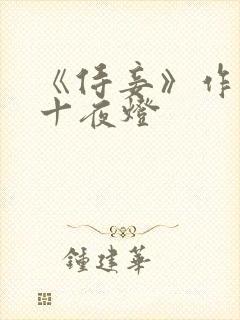 《侍妾》作
十夜燈
鍾建華